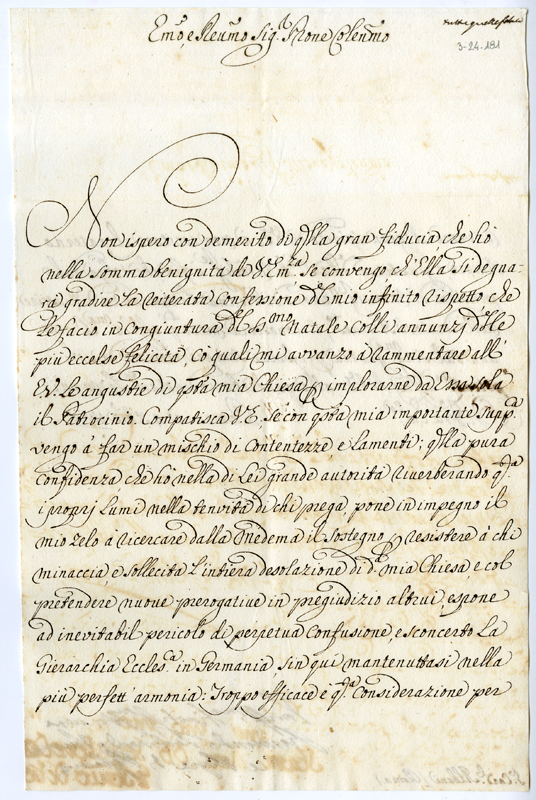 Em̃o, e Reum̃o Sig.r Prone Colenm̃o
3-24.181
Non ispero con demerito di qlla gran fiducia che hò
nella somma benignità di V. Em.za Se convengo ch'Ella si degna-
rà gradire la reiterata Confessione d'l mio infinito rispetto che
Le facio in Congiuntura d'l SS.mo Natale Colli annunzj d'lle
più eccelse felicità, Co quali mi avvanzo à rammentare all'
E.V. Le angustie di qsta mia Chiesa, e p implorarne da Essa sola
il Patrocinio. Compatisca V.E. Se con qsta mia importante supp.a
vengo à far un mischio di Contentezze, e Lamenti; qlla pura
Confidenza che hò nella di Lei grande autorità riverberando q.ta
i proprj Lumi nella tenvità di chi prega, pone in impegno il
mio zelo à ricercare dalla Medema il sostegno p resistere à chi
minaccia, e sollecita L'intiera desolazione di d.a mia Chiesa, e col
pretendere nuove prerogative in pregiudizio altrui, espone
ad inevitabil pericolo di perpetua Confusione, e sconcerto La
Gierarchia Eccles.a in Germania, sin qui mantenuttasi nella
più perfett' armonia: Troppo efficace è q.ta Considerazione per